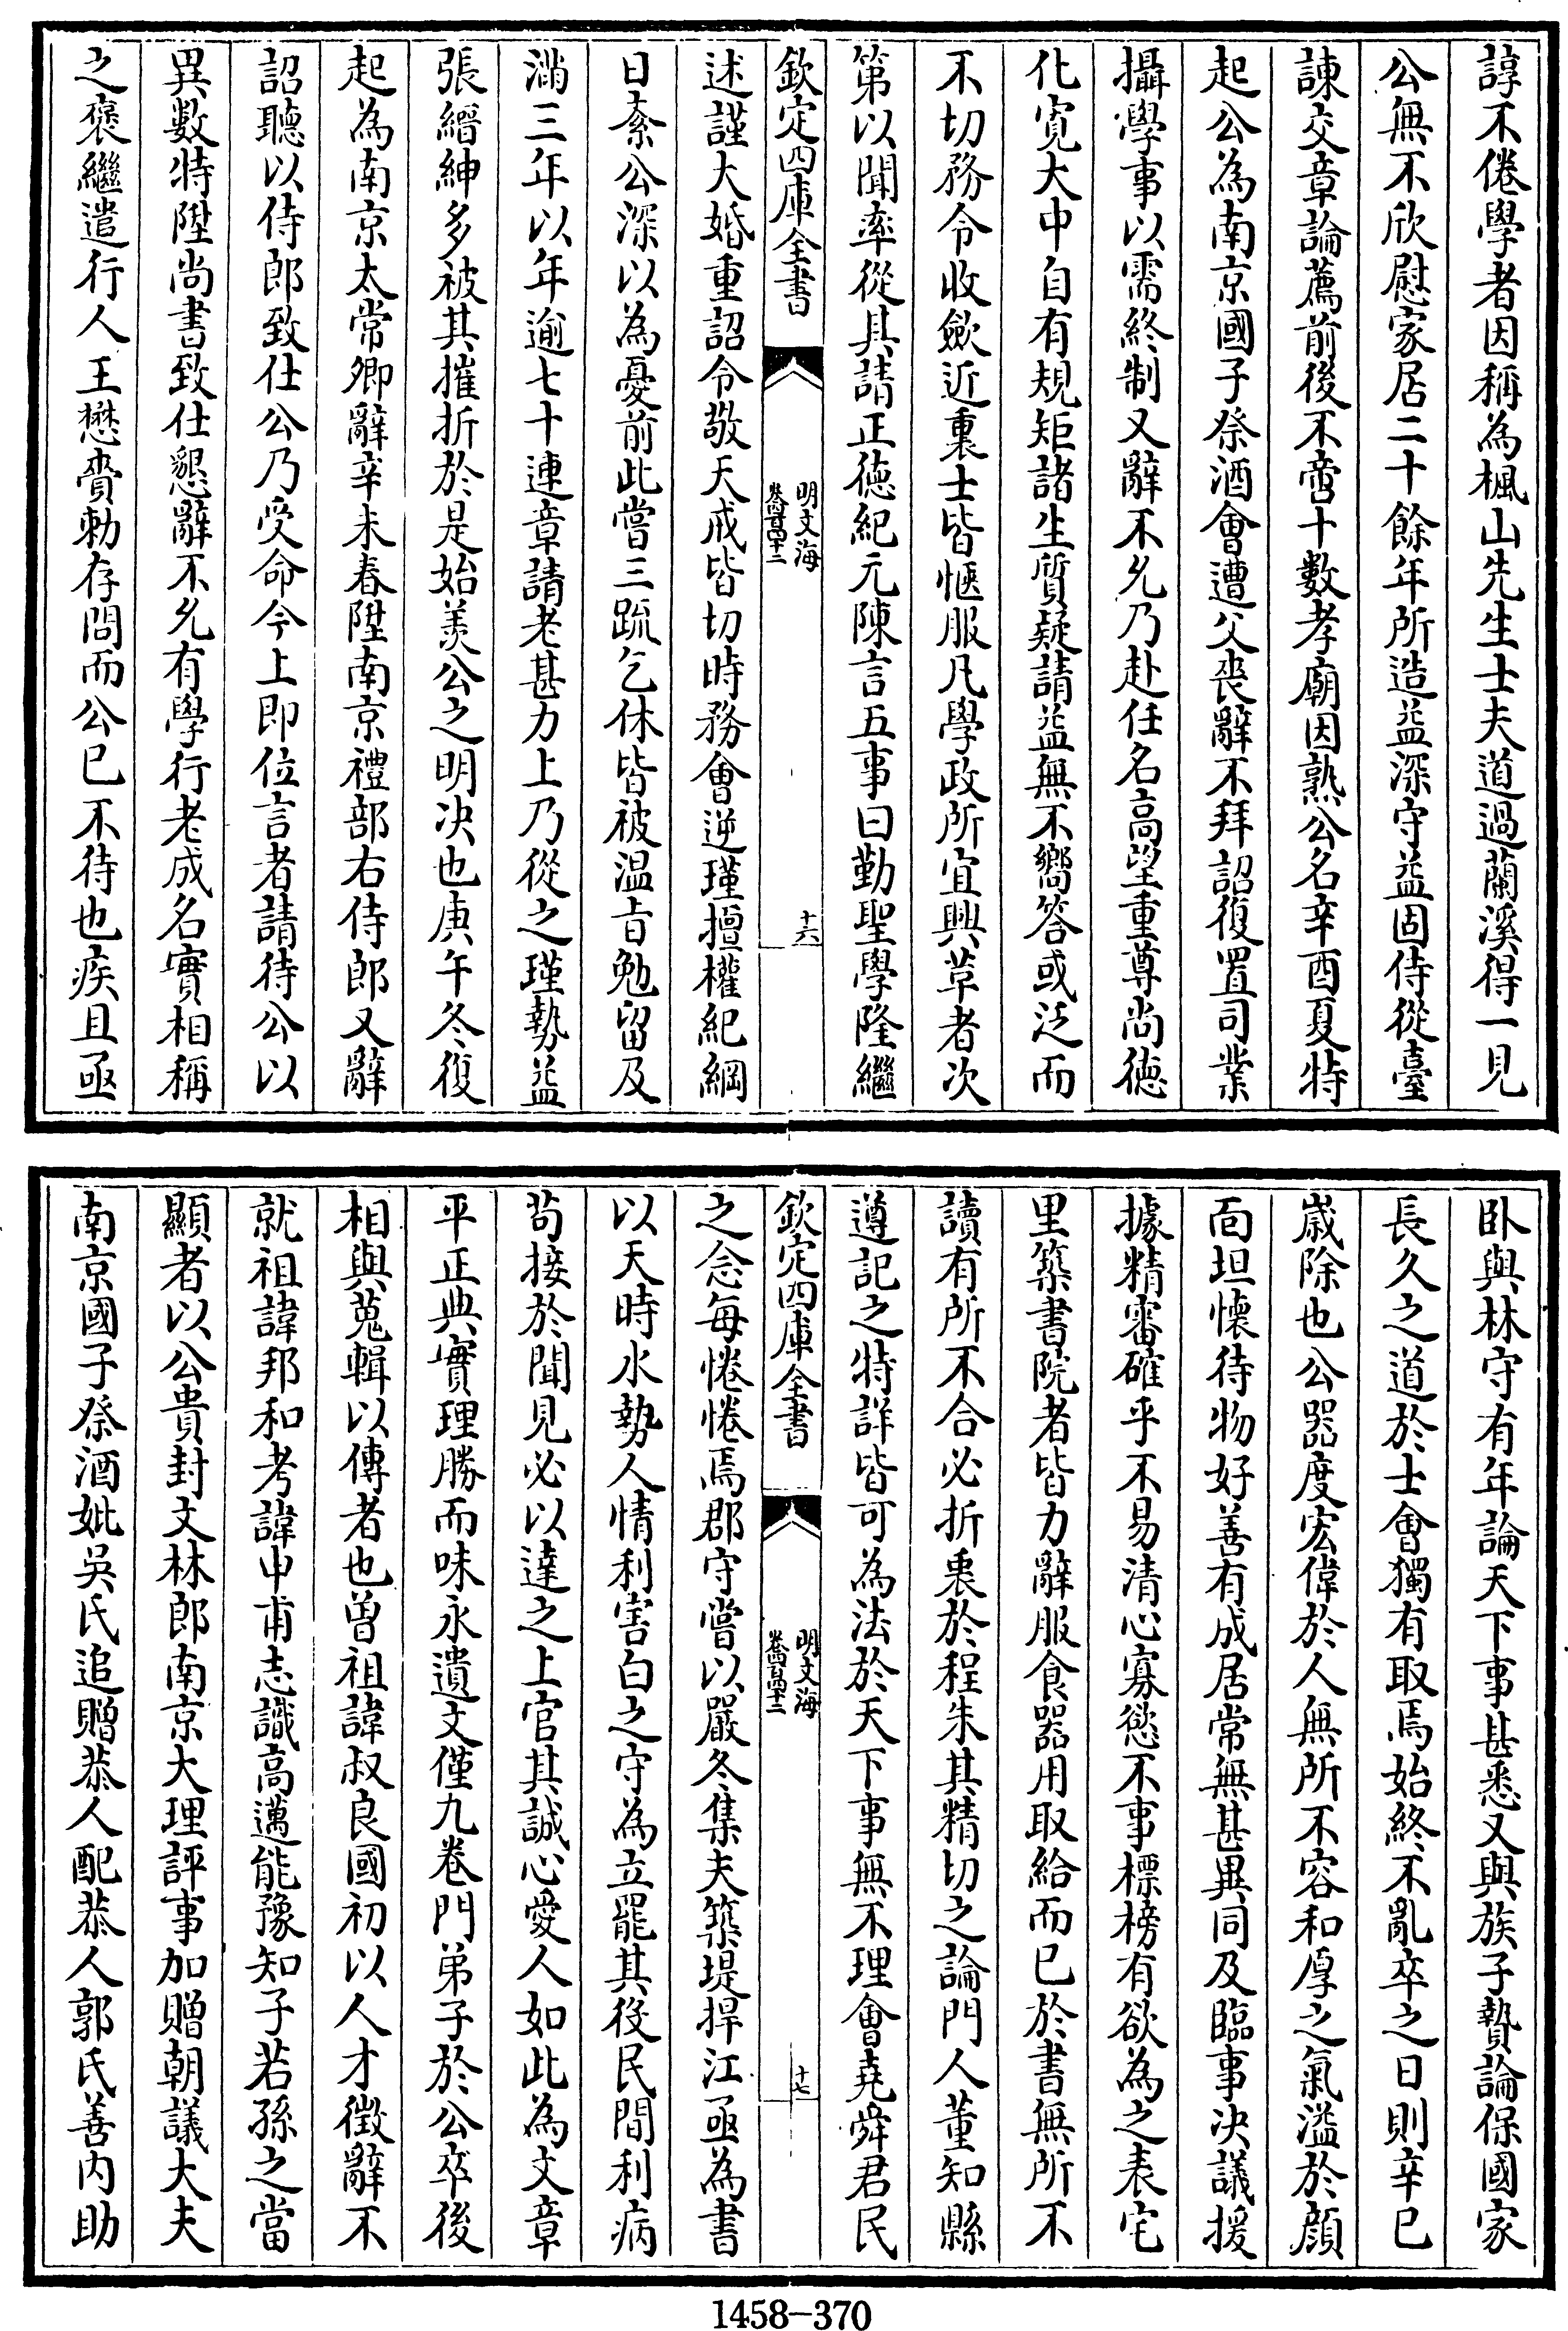 諄不倦學者因稱為楓山先生士夫道過蘭溪得一見
公無不欣慰家居二十餘年所造益深守益固侍從臺
諫交章論薦前後不啻十數孝廟因熟公名辛酉夏特
起公為南京國子祭酒會遭父喪辭不拜詔復置司業
攝學事以需終制又辭不允乃赴任名高望重尊尚徳
化寛大中自有規矩諸生質疑請益無不嚮答或泛而
不切務令收斂近裏士皆愜服凡學政所宜興革者次
第以聞率從其請正徳紀元陳言五事曰勤聖學隆繼
欽定四庫全書
明文海
卷四百四十二
十六
述謹大婚重詔令敬天戒皆切時務會逆瑾擅權紀綱
日紊公深以為憂前此嘗三疏乞休皆被温㫖勉留及
滿三年以年逾七十連章請老甚力上乃從之瑾勢益
張縉紳多被其摧折於是始羨公之明决也庚午冬復
起為南京太常卿辭辛未春陞南京禮部右侍郎又辭
詔聽以侍郎致仕公乃受命今上即位言者請待公以
異數特陞尚書致仕懇辭不允有學行老成名實相稱
之褒繼遣行人王懋賫勅存問而公已不待也疾且亟
卧與林守有年論天下事甚悉又與族子贄論保國家
長久之道於士會獨有取焉始終不亂卒之日則辛巳
嵗除也公器度宏偉於人無所不容和厚之氣溢於顔
面坦懐待物好善有成居常無甚異同及臨事决議援
據精審確乎不易清心寡慾不事標榜有欲為之表宅
里築書院者皆力辭服食器用取給而已於書無所不
讀有所不合必折衷於程朱其精切之論門人董知縣
遵記之特詳皆可為法於天下事無不理會堯舜君民
欽定四庫全書
明文海
卷四百四十二
十七
之念每惓惓焉郡守嘗以嚴冬集夫築堤捍江亟為書
以天時水勢人情利害白之守為立罷其役民間利病
茍接於聞見必以達之上官其誠心愛人如此為文章
平正典實理勝而味永遺文僅九卷門弟子於公卒後
相與蒐輯以傳者也曽祖諱叔良國初以人才徴辭不
就祖諱邦和考諱申甫志識高邁能豫知子若孫之當
顯者以公貴封文林郎南京大理評事加贈朝議大夫
南京國子祭酒妣吳氏追贈恭人配恭人郭氏善内助
1458-370